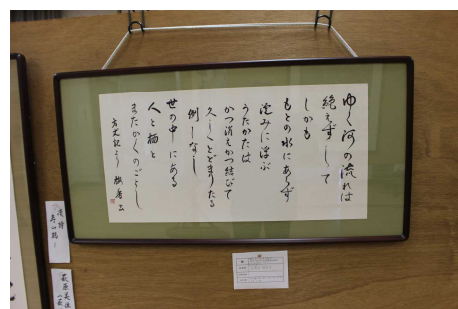 ゆく河の流れは
絶えずして
しかも
もとの水にあらず
淀みに浮ぶ
うたかたは
かつ消えかつ結びて
久しくとどまりたる
例しなし
世の中にある
人と栖と
またかくのごとし
方丈記より